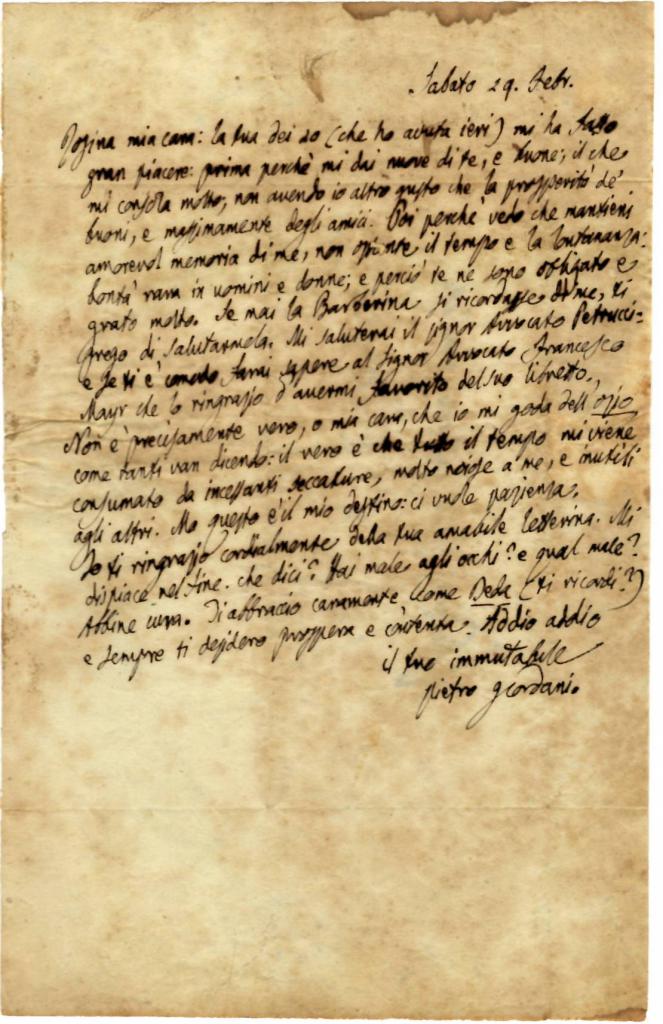 Sabato 29. Febr.
Rosina mia cara: la tua dei 20 (che ho avuta ieri) mi ha fatto
gran piacere: prima perchè mi dai nuove di te, e buone; il che
mi consola molto, non avendo io altro gusto che la prosperità de'
buoni, e massinamente degli amici. Poi perchè vedo che mantieni
amorevol memoria di me, non ostante il tempo e la lontananza:
bontà rara in uomini e donne; e perciò te ne sono obbligato e
grato molto. Se mai la Barberina si ricordasse di me, ti
prego di salutarmela. Mi saluterai il signor Avvocato Petrucci:
e se ti è comodo farai sapere al signor Avvocato Francesco
Mayr che lo ringrazio d'avermi favorito del suo libretto.
Non è precisamente vero, o mia cara, che io mi goda dell'ozio
come tanti van dicendo: il vero è che tutto il tempo mi viene
consumato da incessanti seccature, molto noiose a me, e inutili
agli altri. Ma questo è il mio destino: ci vuole pazienza.
Io ti ringrazio cordialmente della tua amabile letterina. Mi
dispiace nel fine. che dici? Hai male agli occhi? e qual male?
Abbine cura. Ti abbraccio caramente come Deda (ti ricordi?)
e sempre ti desidero prospera e contenta. Addio addio
il tuo immutabile
pietro giordani.